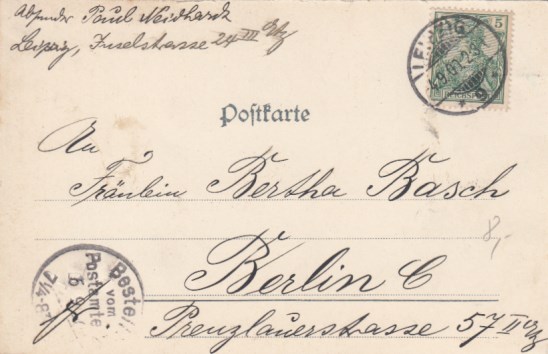 Absender Paul Neidhardt
Leipzig, Inselstrasse 24 III
5
LEIPZIG
Postkarte
An
Fräulein Bertha Basch
8,-
Berlin C
Prenzlauerstrasse 57 II
Bestellt
vom
Postamte
7¼-8